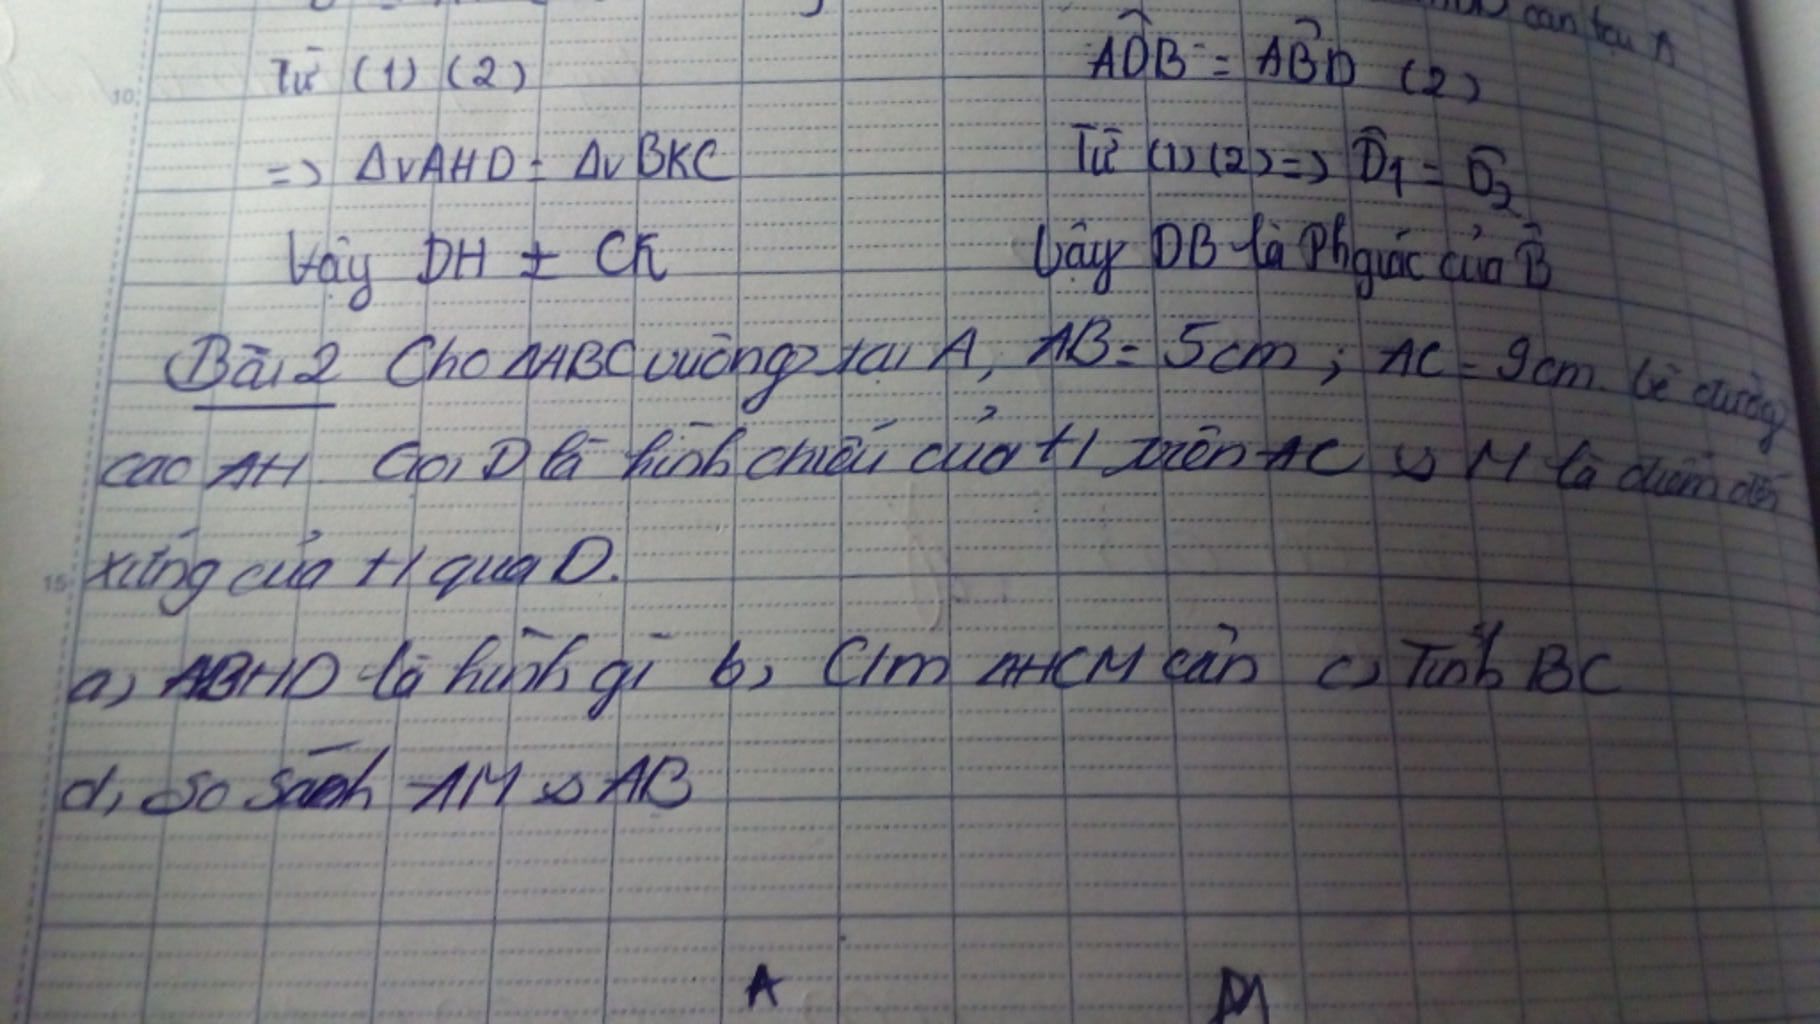 cân tại A
Từ (1) (2)
ADB = ABD (2)
=> ΔvAHD = ΔvBKC
Từ (1) (2) => D1 = D2
Vậy DH = CK
Vậy DB là Phgiác của B
Bài 2 Cho ΔABC vuông tại A, AB = 5cm; AC = 9cm. Vẽ đường
cao AH. Gọi D là hình chiếu của H trên AC và M là điểm đối
xứng của H qua D.
a, ABHD là hình gì b, C/m ΔHCM cân c, Tính BC
d, So sánh AM và AB
A M
10
15